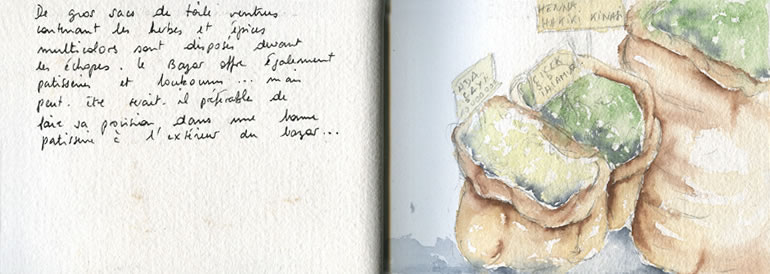 De gros sacs de toile ventrus
contenant les herbes et épices
multicolors sont disposés devant
les échopes. le Bazar offre également
patisseries et loukoums... mais
peut. être serait. il préférable de
faire sa provision dans une bonne
patisserie à l'extérieur du bazar...
HENNA
HAKIKI KINASI
ADA
ÇAYI